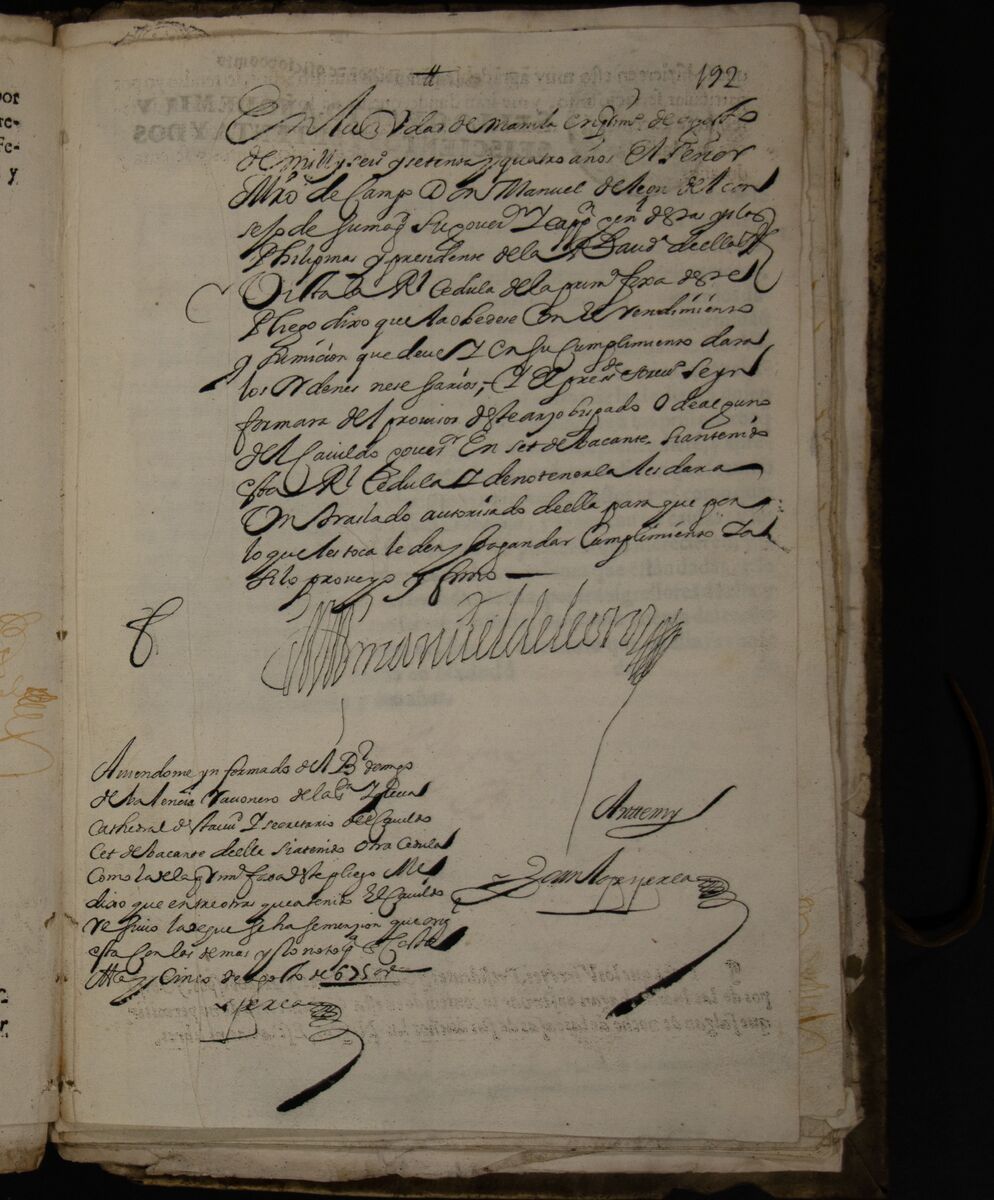 192
En la Ciudad de Manila en prim.º de agosto
de mill y seis.º y setenta y quatro años El Señor
Mro de Campo Don Manuel de leon del Con
sejo de su mag.d su gover.or Y capp.n gen.l destas yslas
Philipinas y presidente de la R.l aud.a de ellas
Vista la R.l Cedula de la prim.a foxa deste
Pliego dixo que la obedese Con el rendimiento
y sumicion que deve Y en su cumplimiento dara
los ordenes nesesarios, Y El press.te escriu.no se yn
formara del provisor deste arzobispado O de alguno
del Cavildo gover.or En set de bacante si a tenido
esta R.l Cedula Y de no tenerla les dara
Un traslado autorisado de ella para que por
lo que les toca le den y hagan dar Cumplimiento Ya
si lo proveyo y firmo
Don manuel de leon
Ante my
Juan
Aviendome ynformado del B.r domingo
de balencia racionero de la S.ta Yglecia
Cathedral desta ciu.d Y secretario del Cavildo
cet de bacante della si a tenido otra Cedula
Como la de la prim.a foxa deste pliego Me
dixo que entre otras que a tenido El Cavildo
resivio la de que se ha se mension que orig
esta con los demas y lo noto
y Cinco de agosto de 675 as